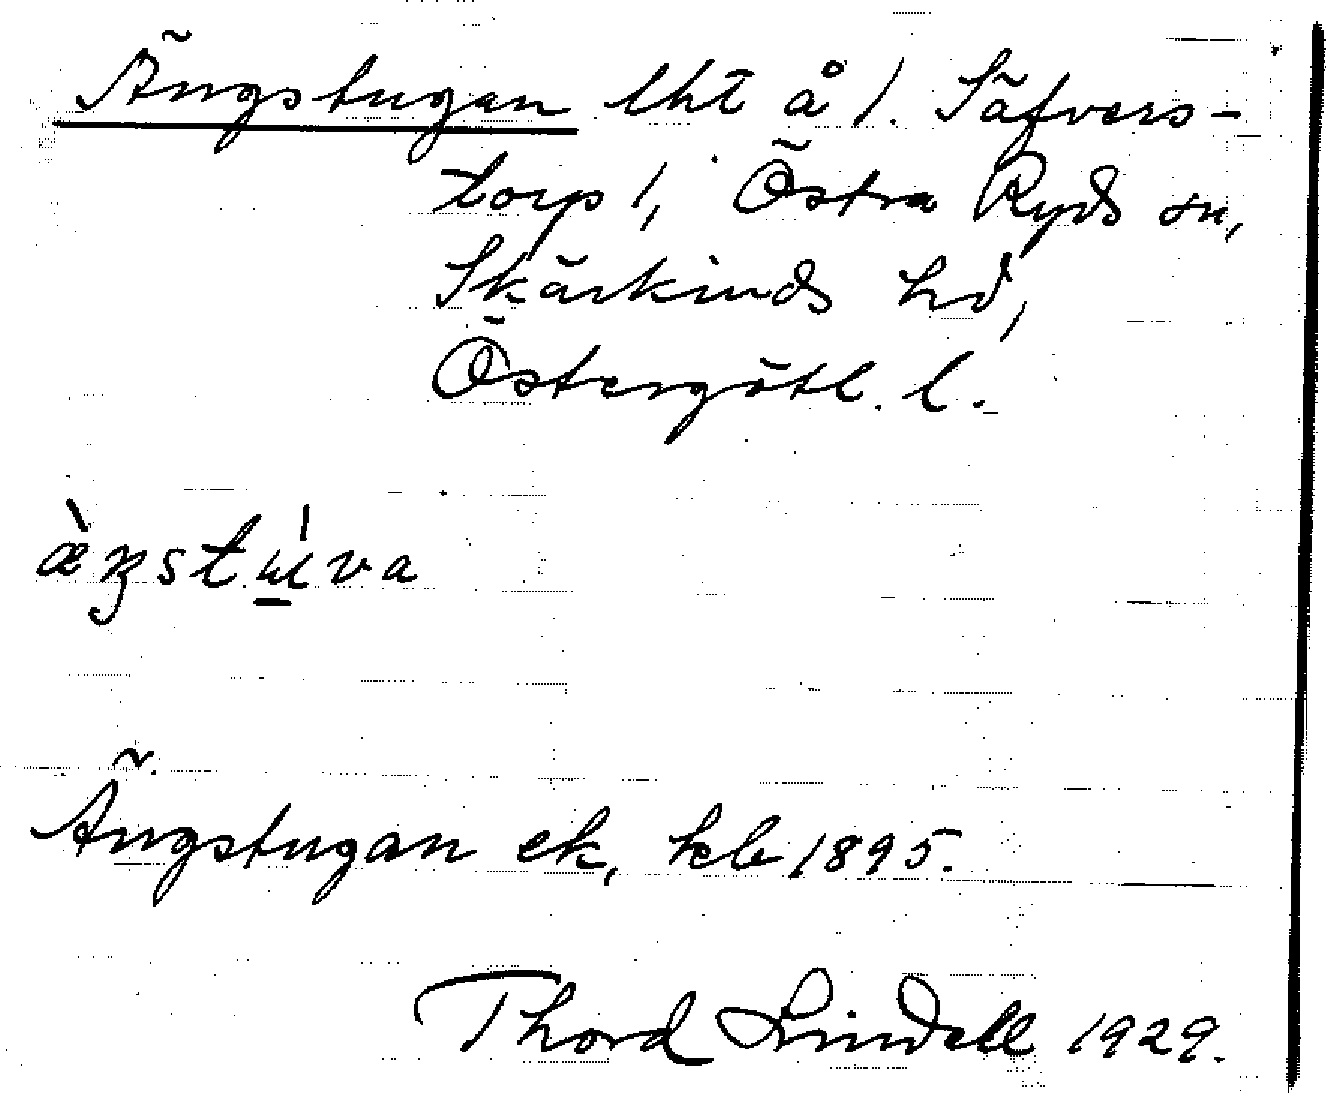 Ängstugan lht å 1. Säfvers-
torp 1, Östra Ryds sn,
Skärkinds hd,
Östergötl. l.
æ̀ŋstú̲va
Ängstugan ek, kbl 1895.
Thord Lindell 1929.